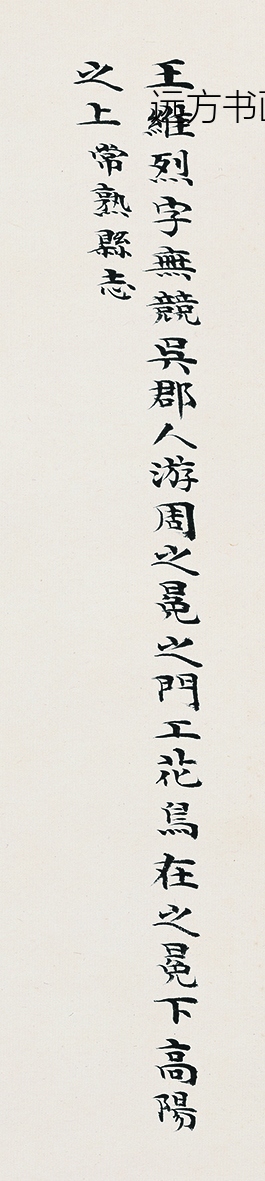 王維烈字無競吳郡人游周之冕之門工花鳥在之冕下高陽
之上常熟縣志
远方书画